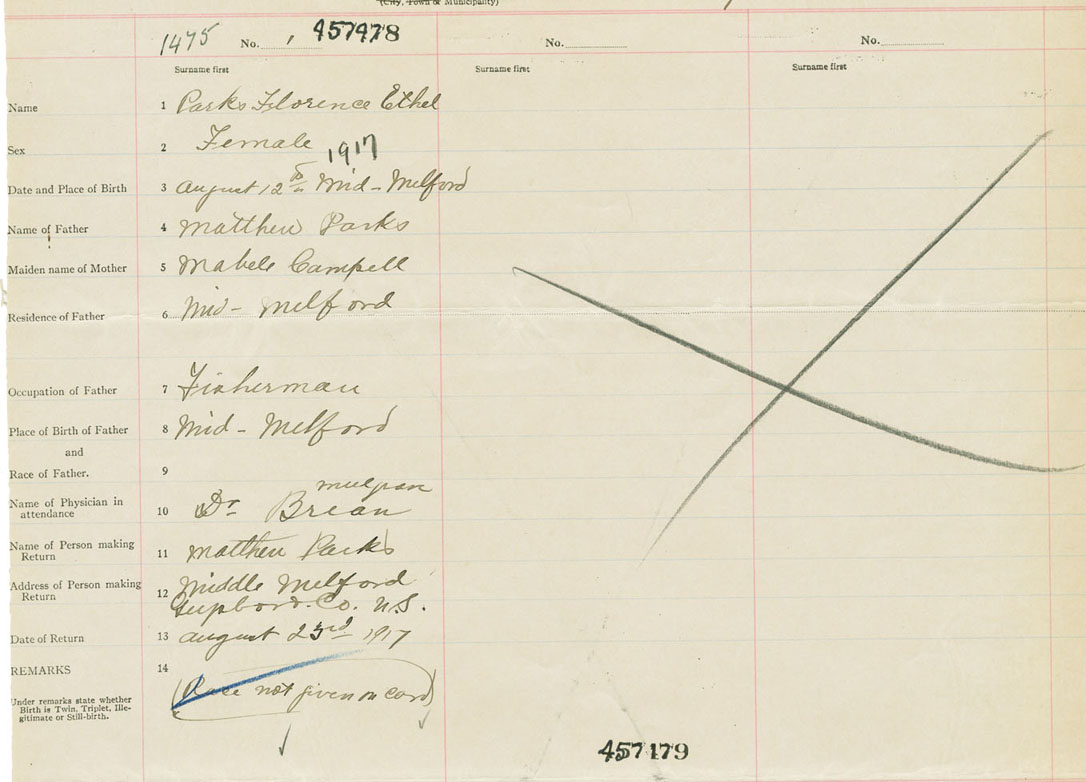 (City, Town or Municipality)
1475 No. 457478
No.
No.
Surname first
Surname first
Surname first
Name 1 Parks Florence Ethel
Sex 2 Female
1917
Date and Place of Birth 3 August 12th Mid-Melford
Name of Father 4 Matthew Parks
Maiden name of Mother 5 Mabele Campell
Residence of Father 6 Mid-Melford
Occupation of Father 7 Fisherman
Place of Birth of Father 8 Mid-Melford
and
Race of Father. 9
Name of Physician in
attendance 10 Dr Brean
Name of Person making
Return 11 Matthew Parks
Address of Person making
Return 12 Middle Melford
Co. N.S.
Date of Return 13 August 23rd 1917
REMARKS 14
(Race not given on card)
Under remarks state whether
Birth is Twin, Triplet, Ille-
gitimate or Still-birth.
457179